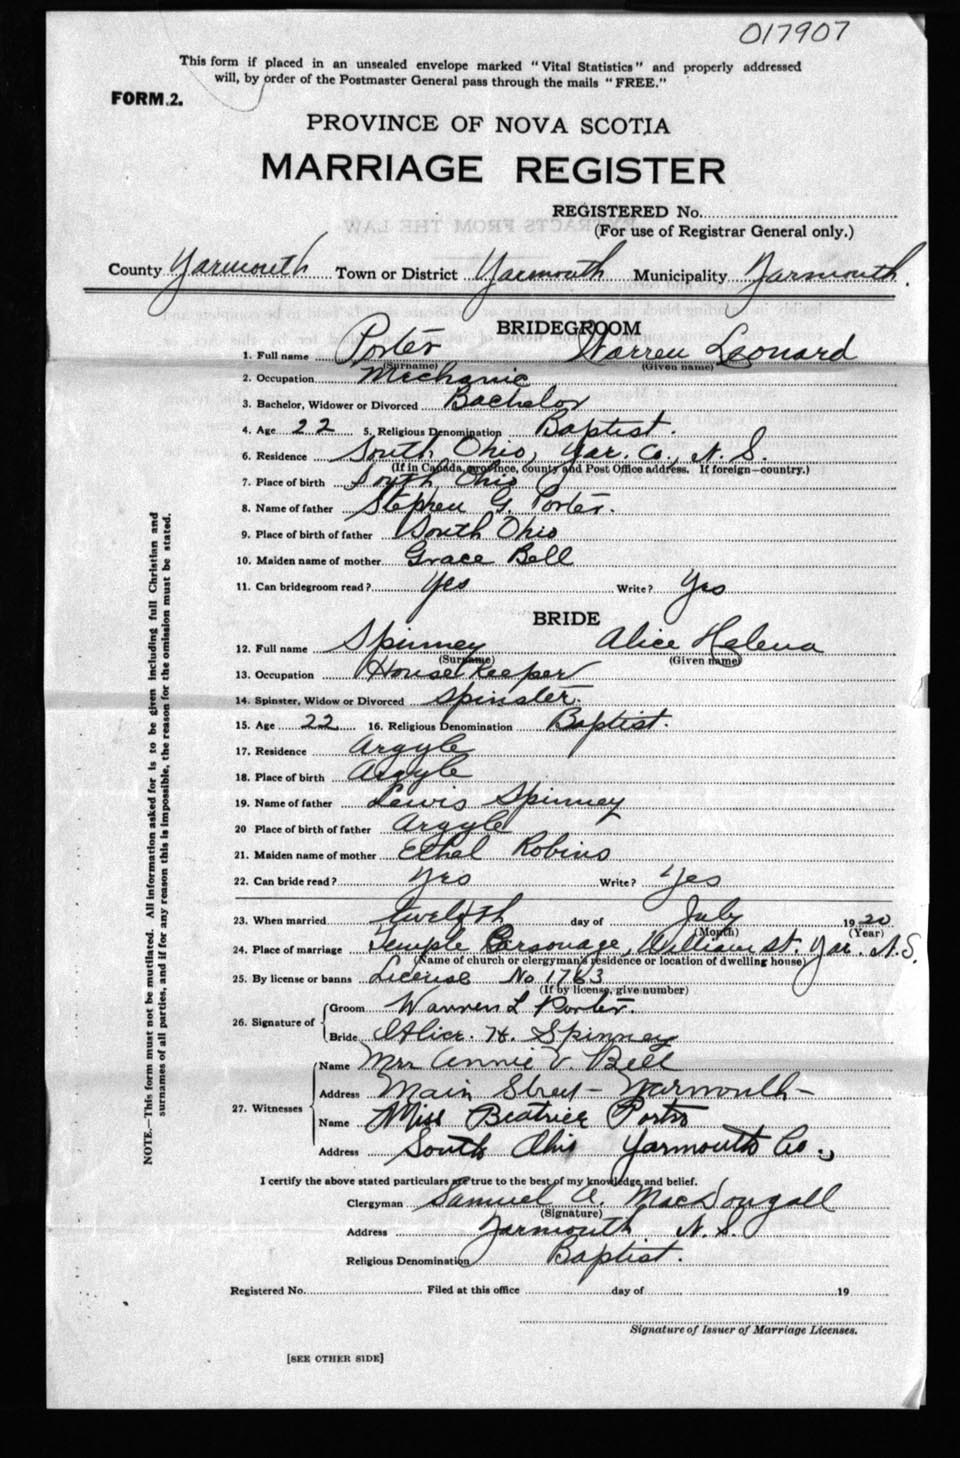 017907
This form if placed in an unsealed envelope marked "Vital Statistics" and properly addressed
will, by order of the Postmaster General pass through the mails "FREE."
FORM 2.
PROVINCE OF NOVA SCOTIA
MARRIAGE REGISTER
REGISTERED No.
(For use of Registrar General only.)
County Yarmouth Town or District Yarmouth Municipality Yarmouth.
BRIDEGROOM
1. Full name Porter Warren Leonard
(Surname) (Given name)
2. Occupation Mechanic
3. Bachelor, Widower or Divorced Bachelor
4. Age 22 5. Religious Denomination Baptist.
6. Residence South Ohio, Yar. Co., N. S.
(If in Canada, province, county and Post Office address. If foreign—country.)
7. Place of birth South Ohio
8. Name of father Stephen G. Porter.
9. Place of birth of father South Ohio
10. Maiden name of mother Grace Bell
11. Can bridegroom read? Yes Write? Yes
BRIDE
12. Full name Spinney Alice Helena
(Surname) (Given name)
13. Occupation House Keeper
14. Spinster, Widow or Divorced Spinster.
15. Age 22 16. Religious Denomination Baptist.
17. Residence Argyle
18. Place of birth Argyle
19. Name of father Lewis Spinney
20 Place of birth of father Argyle
21. Maiden name of mother Ethel Robins
22. Can bride read? Yes Write? Yes
23. When married Twelfth day of July 1920
(Month) (Year)
24. Place of marriage Temple Parsonage, William St. Yar. N.S.
(Name of church or clergyman's residence or location of dwelling house)
25. By license or banns License No 1763
(If by license, give number)
26. Signature of
Groom Warren L Porter.
Bride Alice. H. Spinney
27. Witnesses
Name Mrs Annie V. Bell
Address Main Street - Yarmouth -
Name Miss Beatrice Porter
Address South Ohio Yarmouth Co.
I certify the above stated particulars are true to the best of my knowledge and belief.
Clergyman Samuel A. MacDougall
(Signature)
Address Yarmouth N. S.
Religious Denomination Baptist.
Registered No. Filed at this office day of 19
Signature of Issuer of Marriage Licenses.
[SEE OTHER SIDE]
NOTE.—This form must not be mutilated. All information asked for is to be given including full Christian and
surnames of all parties, and if for any reason this is impossible, the reason for the omission must be stated.